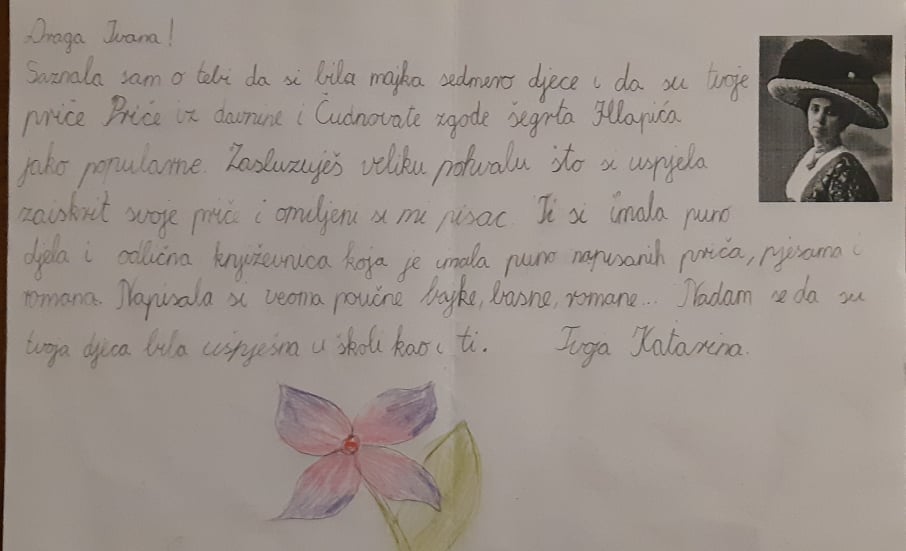 Draga Ivana!
Saznala sam o tebi da si bila majka sedmero djece i da su tvoje
priče Priče iz davnine i Čudnovate zgode šegrta Hlapića
jako popularne. Zaslužuješ veliku pohvalu što si uspjela
zaiskrit svoje priče i omiljeni si mi pisac. Ti si imala puno
djela i odlična književnica koja je imala puno napisanih priča, pjesama i
romana. Napisala si veoma poučne bajke, basne, romane... Nadam se da su
tvoja djeca bila uspješna u školi kao i ti. Tvoja Katarina.